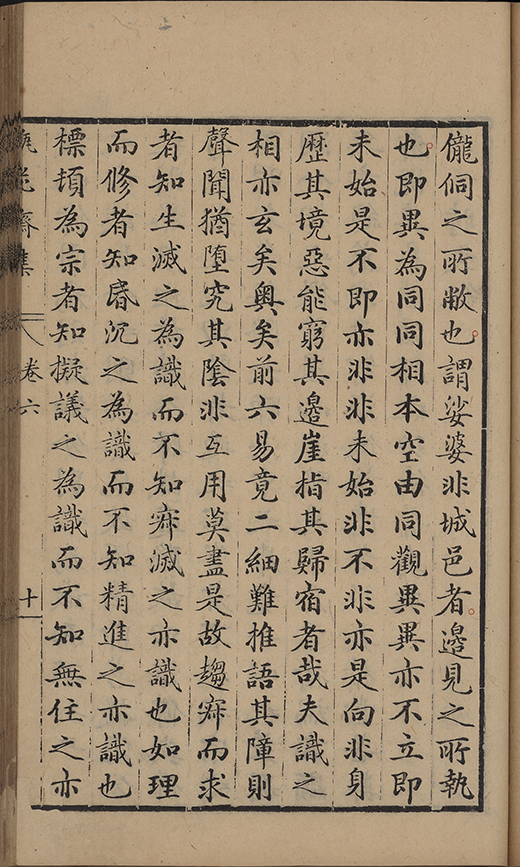 儱侗之所敝也謂娑婆非城邑者邉見之所執
也即異為同同相本空由同觀異異亦不立即
未始是不即亦非非未始非不非亦是向非身
歷其境惡能窮其邉崖指其歸宿者哉夫識之
相亦玄矣奥矣前六易竟二細難推語其障則
聲聞猶墮究其陰非互用莫盡是故趨寂而求
者知生滅之為識而不知寂滅之亦識也如理
而修者知昏沉之為識而不知精進之亦識也
標頓為宗者知擬議之為識而不知無住之亦
卷六
十